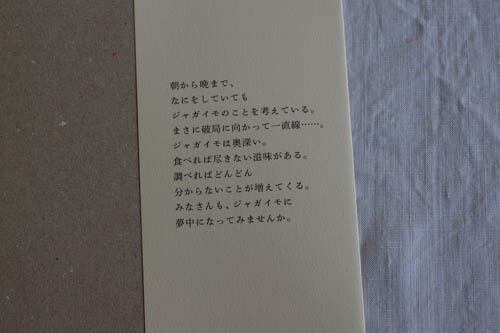 朝から晩まで、
なにをしていても
ジャガイモのことを考えている。
まさに破局に向かって一直線……。
ジャガイモは奥深い。
食べれば尽きない滋味がある。
調べればどんどん
分からないことが増えてくる。
みなさんも、ジャガイモに
夢中になってみませんか。